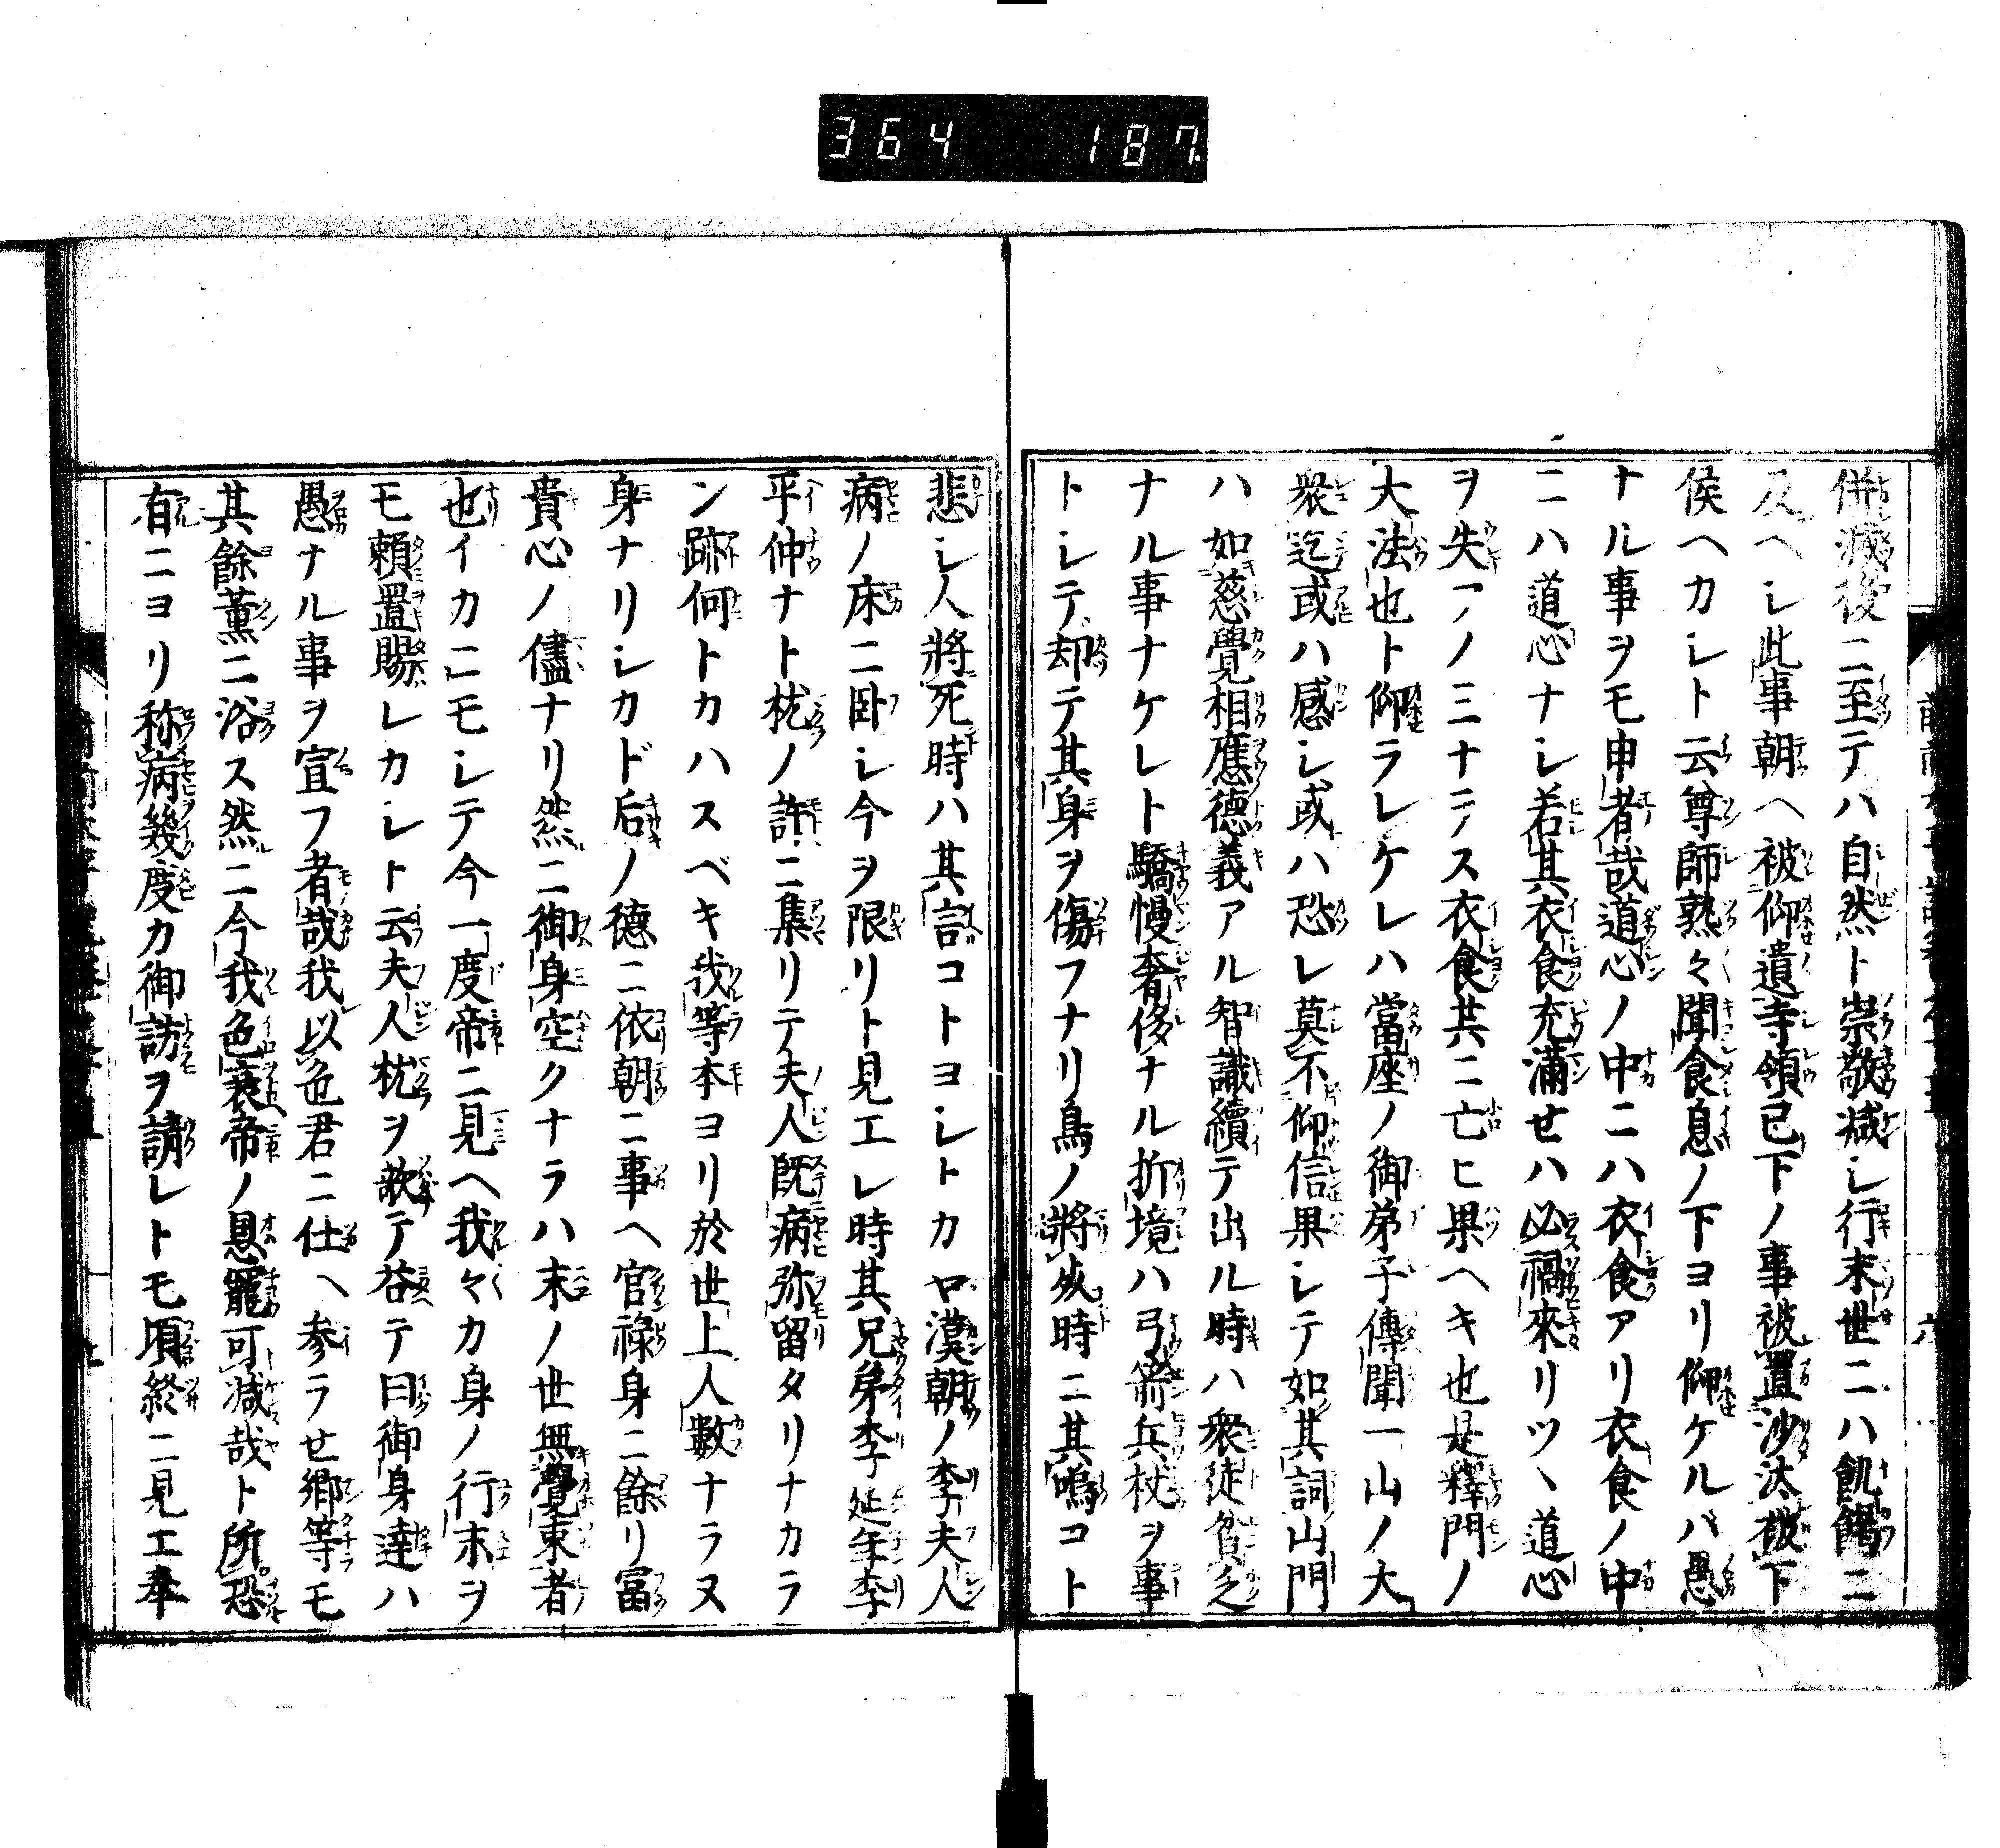 364 187
併滅後ニ至テハ自然ト崇敬減シ行末世ニハ飢饉ニ
及ヘシ此事朝ヘ被仰遺寺領已下ノ事被置沙汰被下
侯ヘカシト云尊師熟々聞食息ノ下ヨリ仰ケルハ愚
ナル事ヲモ申者哉道心ノ中ニハ衣食アリ衣食ノ中
ニハ道心ナシ若其衣食充滿せハ必禍來リツヽ道心
ヲ失フノミナラス衣食共ニ亡ヒ果ヘキ也是釋門ノ
大法也ト仰ラレケレハ當座ノ御弟子傳聞一山ノ大
衆迄或ハ感シ或ハ恐レ莫不仰信果シテ如其詞山門
ハ如慈覺相應德義アル智識續テ出ル時ハ衆徒貧乏
ナル事ナケレト驕慢奢侈ナル折境ハ弓箭兵杖ヲ事
トシテ却テ其身ヲ傷フナリ鳥ノ將死時ニ其鳴コト
悲シ人將死時ハ其言コトヨシトカヤ漢朝ノ李夫人
病ノ床ニ卧シ今ヲ限リト見エシ時其兄弟李延年李
平仲ナト枕ノ許ニ集リテ夫人既病弥留タリナカラ
ン跡何トカハスベキ我等本ヨリ於世上人數ナラヌ
身ナリシカド后ノ德ニ依朝ニ事ヘ官祿身ニ餘リ冨
貴心ノ儘ナリ然ニ御身空クナラハ末ノ世無覺束者
也イカニモシテ今一度帝ニ見ヘ我々カ身ノ行末ヲ
モ賴置賜レカシト云夫人枕ヲ欹テ答テ曰御身達ハ
愚ナル事ヲ宣フ者哉我以色君ニ仕ヘ参ラせ郷等モ
其餘薫ニ浴ス然ニ今我色衰帝ノ恩寵可減哉ト所恐
有ニヨリ称病幾度カ御訪ヲ請シトモ項終ニ見エ奉